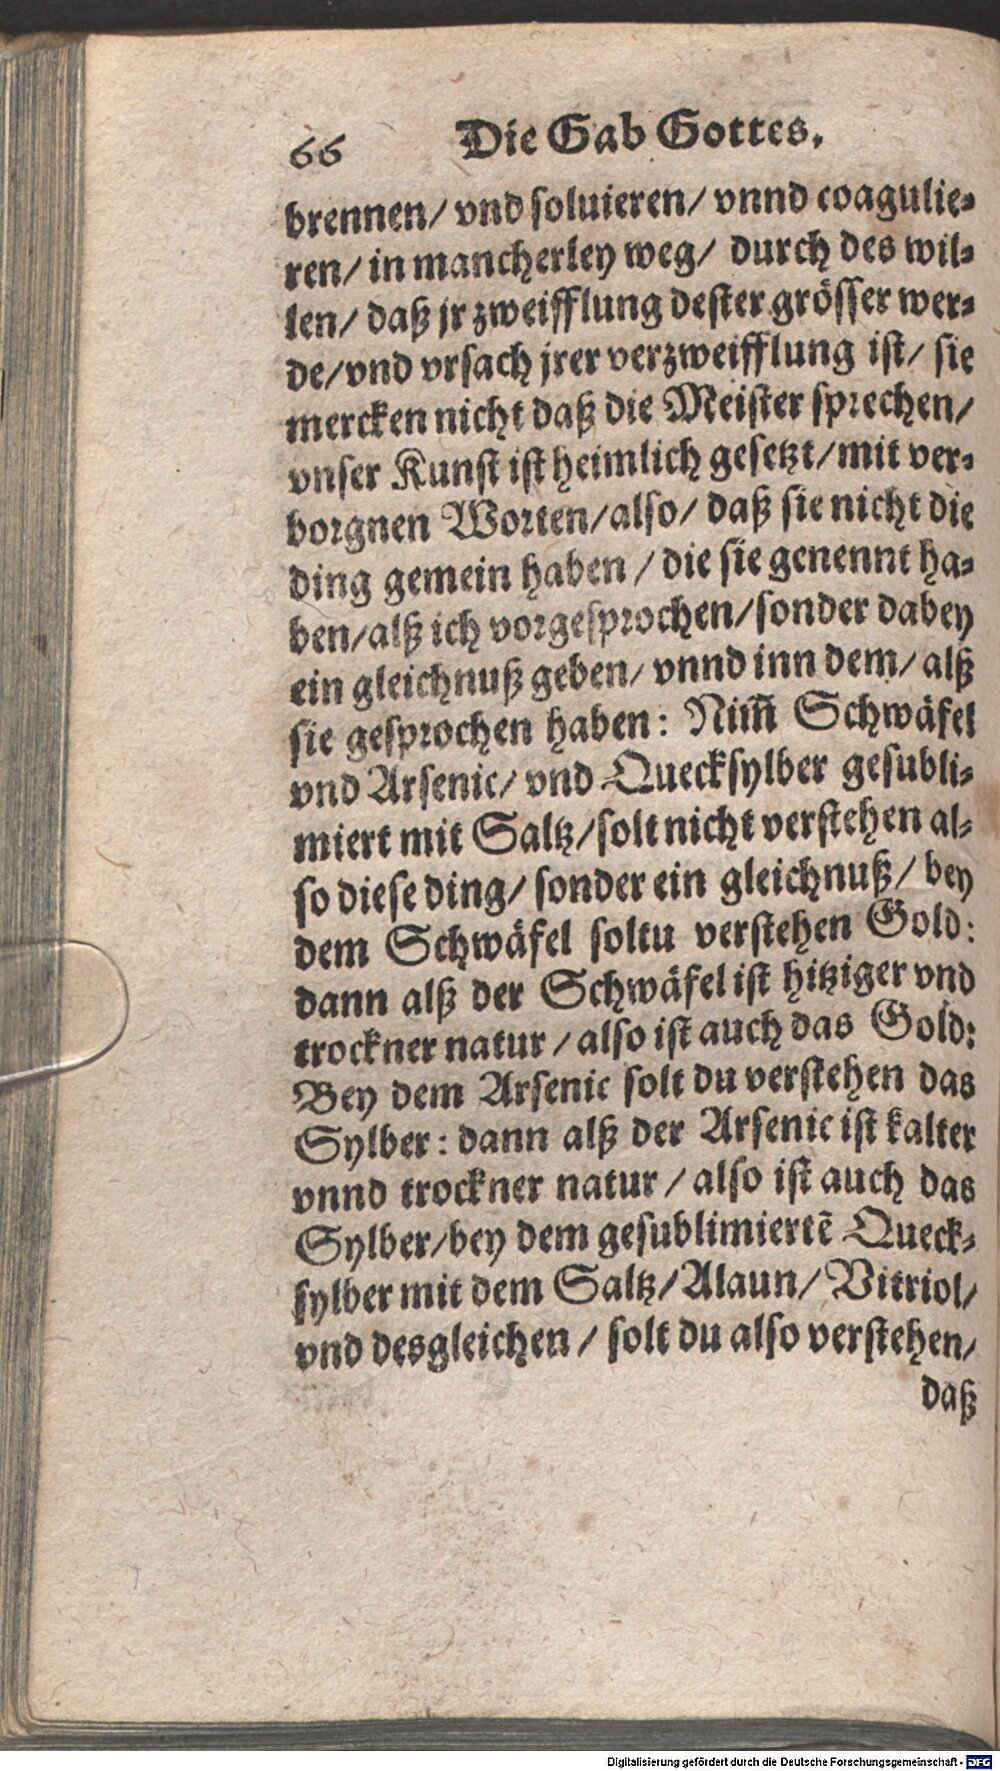 66 Die Gab Gottes.
brennen/ vnd soluieren/ vnnd coagulie⸗
ren/ in mancherley weg/ durch des wil⸗
len/ daß jr zweifflung dester grösser wer⸗
de/ vnd vrsach jrer verzweifflung ist/ sie
mercken nicht daß die Meister sprechen/
vnser Kunst ist heimlich gesetzt/ mit ver⸗
borgnen Worten/ also/ daß sie nicht die
ding gemein haben / die sie genennt ha⸗
ben/ alß ich vorgesprochen/ sonder dabey
ein gleichnuß geben/ vnnd inn dem/ alß
sie gesprochen haben: Nim̃ Schwäfel
vnd Arsenic/ vnd Quecksylber gesubli⸗
miert mit Saltz/ solt nicht verstehen al⸗
so diese ding/ sonder ein gleichnuß/ bey
dem Schwäfel soltu verstehen Gold:
dann alß der Schwäfel ist hitziger vnd
trockner natur / also ist auch das Gold:
Bey dem Arsenic solt du verstehen das
Sylber: dann alß der Arsenic ist kalter
vnnd trockner natur / also ist auch das
Sylber/ bey dem gesublimiertẽ Queck⸗
sylber mit dem Saltz/ Alaun/ Vitriol/
vnd desgleichen / solt du also verstehen/
daß
Digitalisierung gefördert durch die Deutsche Forschungsgemeinschaft - DFG